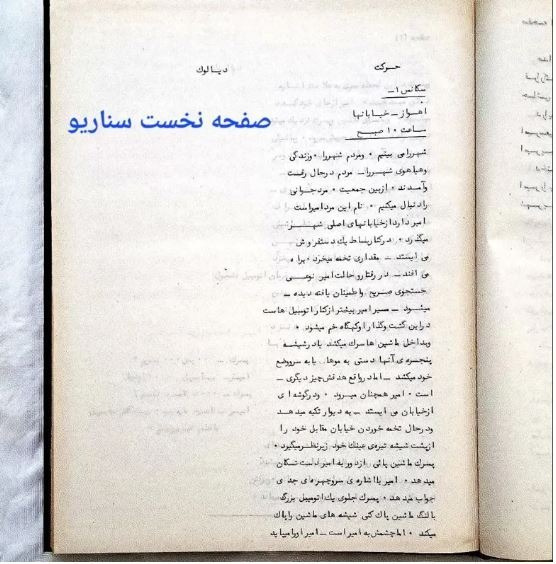 حرکت
دیالوگ
سکانس ۱ــ
اهواز ــ خیابانها
ساعت ۱۰ صبح
صفحه نخست سناریو
شهررا می بینیم ۰ ومردم شهررا ۰ وزندگی
وهیاهوی شهررا ــ مردم درحال رفت
وآمدند ۰ ازبین جمعیت ۰ مردجوانی
رادنبال میکنیم ۰ نام این مردامیراست
امیرداردازخیابانهای اصلی شهر
میگذرد ۰ درکناربساط یك دستفروش
می ایستد ــ مقداری تخمه میخرد ۰ براه
می افتد ــ دررفتاروحالت امیر نوعی
جستجوی صریح واطمینان یافته دیده ــ
میشود ــ مسیرامیربیشترازکناراتومبیل هاست
دراین گشت وگذاراوگهگاه خم میشود ۰
وبداخل ماشین هاسرك میکشد یادرشیشه
پنجره ی آنها دستی به موها یابه سرووضع
خود میکشد ــ امادرواقع هدفش چیزدیگری ــ
است ۰ امیرهمچنان میرود ۰ ودرگوشه ای
ازخیابان می ایستد ــ به دیوارتکیه میدهد
ودرحال تخمه خوردن خیابان مقابل خود را
ازپشت شیشه تیره ی عینك خود زیرنظرمیگیرد ۰
پسرك ماشین پائی ازدوربه امیردست تکان
میدهد ۰ امیر بااشاره ی سروچهره ی جدی
جواب میدهد ۰ پسرك جلوی یك اتومبیل بزرگ
بالنگ ماشین پاك کنی شیشه های ماشین راپاك
میکند ۰ اماچشمش به امیراست ــ امیراورامیپاید